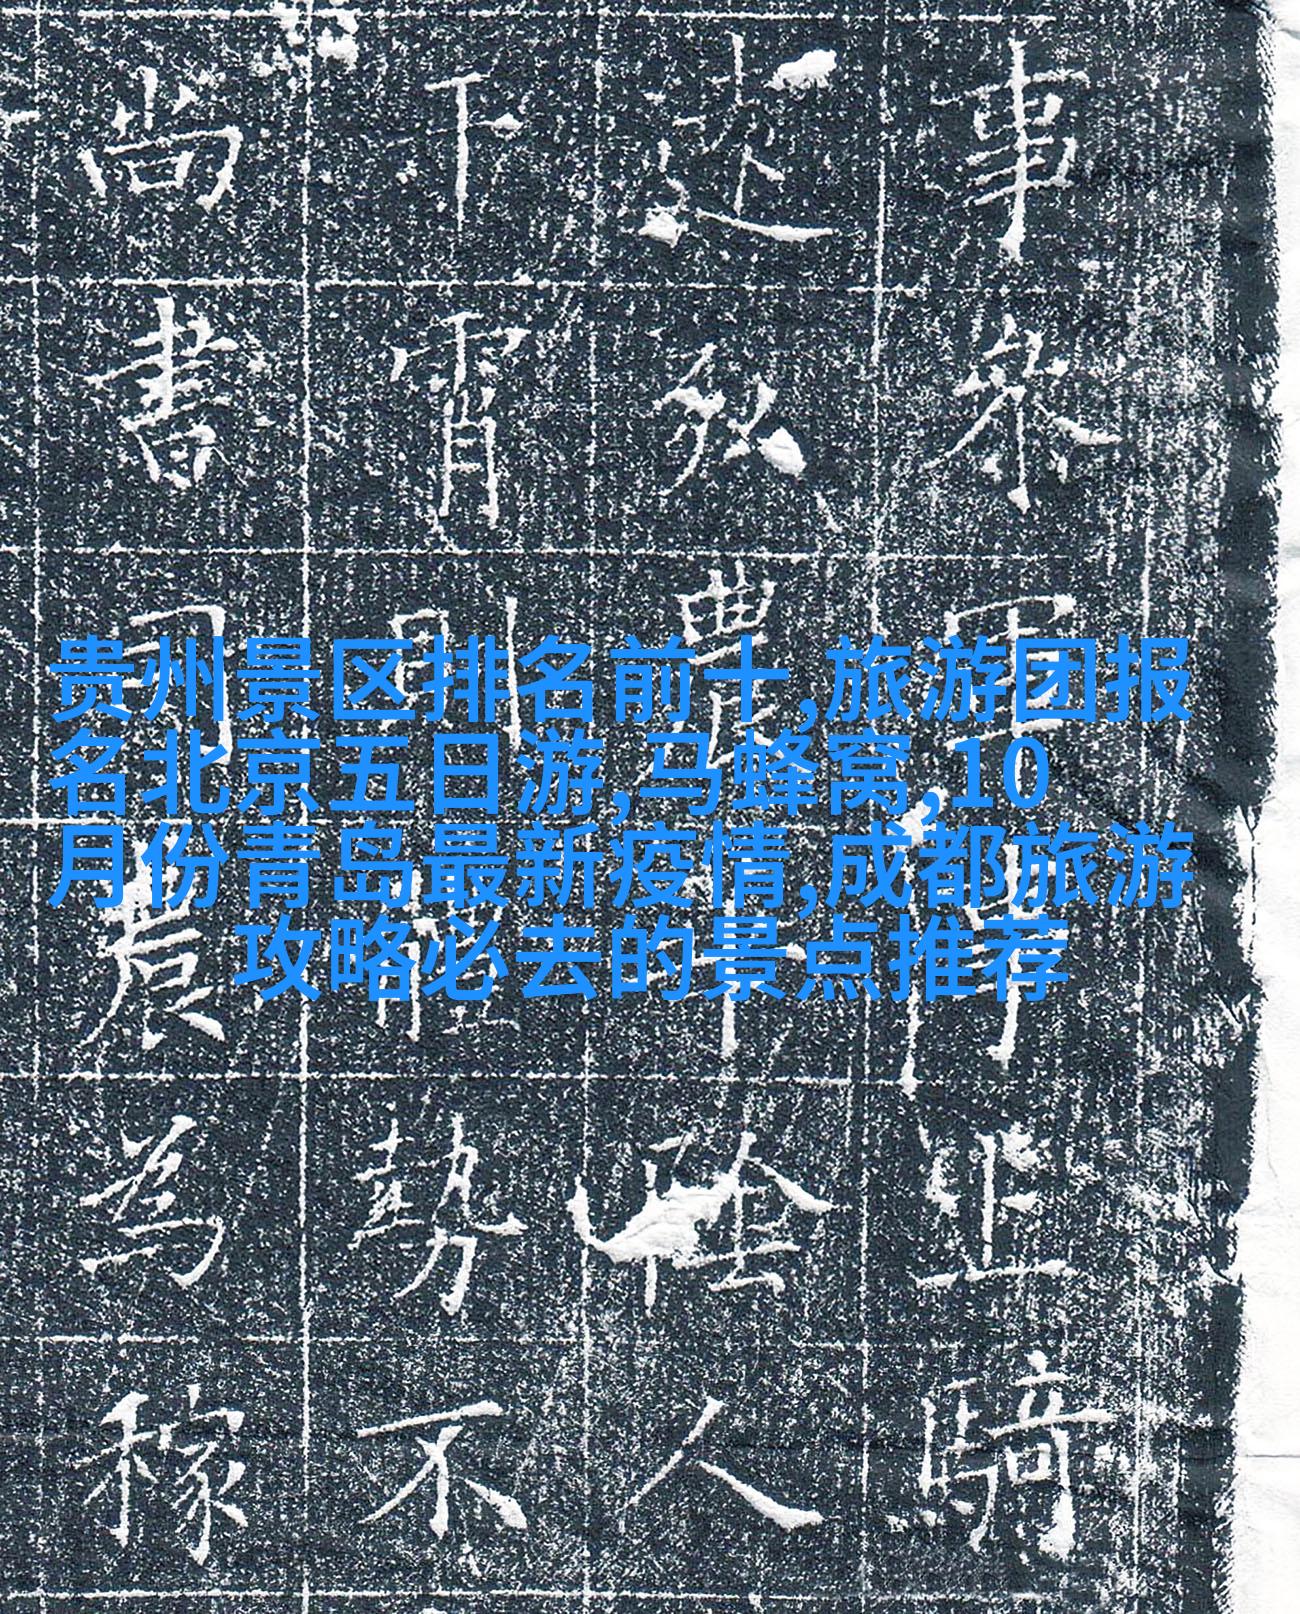 贵州景区排名前十,旅游团报
名北京五日游,马蜂窝,10
月份青岛最新疫情,成都旅游
攻略必去的景点推荐
事參軍事上騎
弘農華陰人
下霄則體勢不
尚書司農為稼